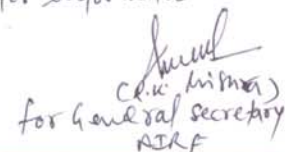 for
(R.K. Mishra)
for General Secretary
AIRF